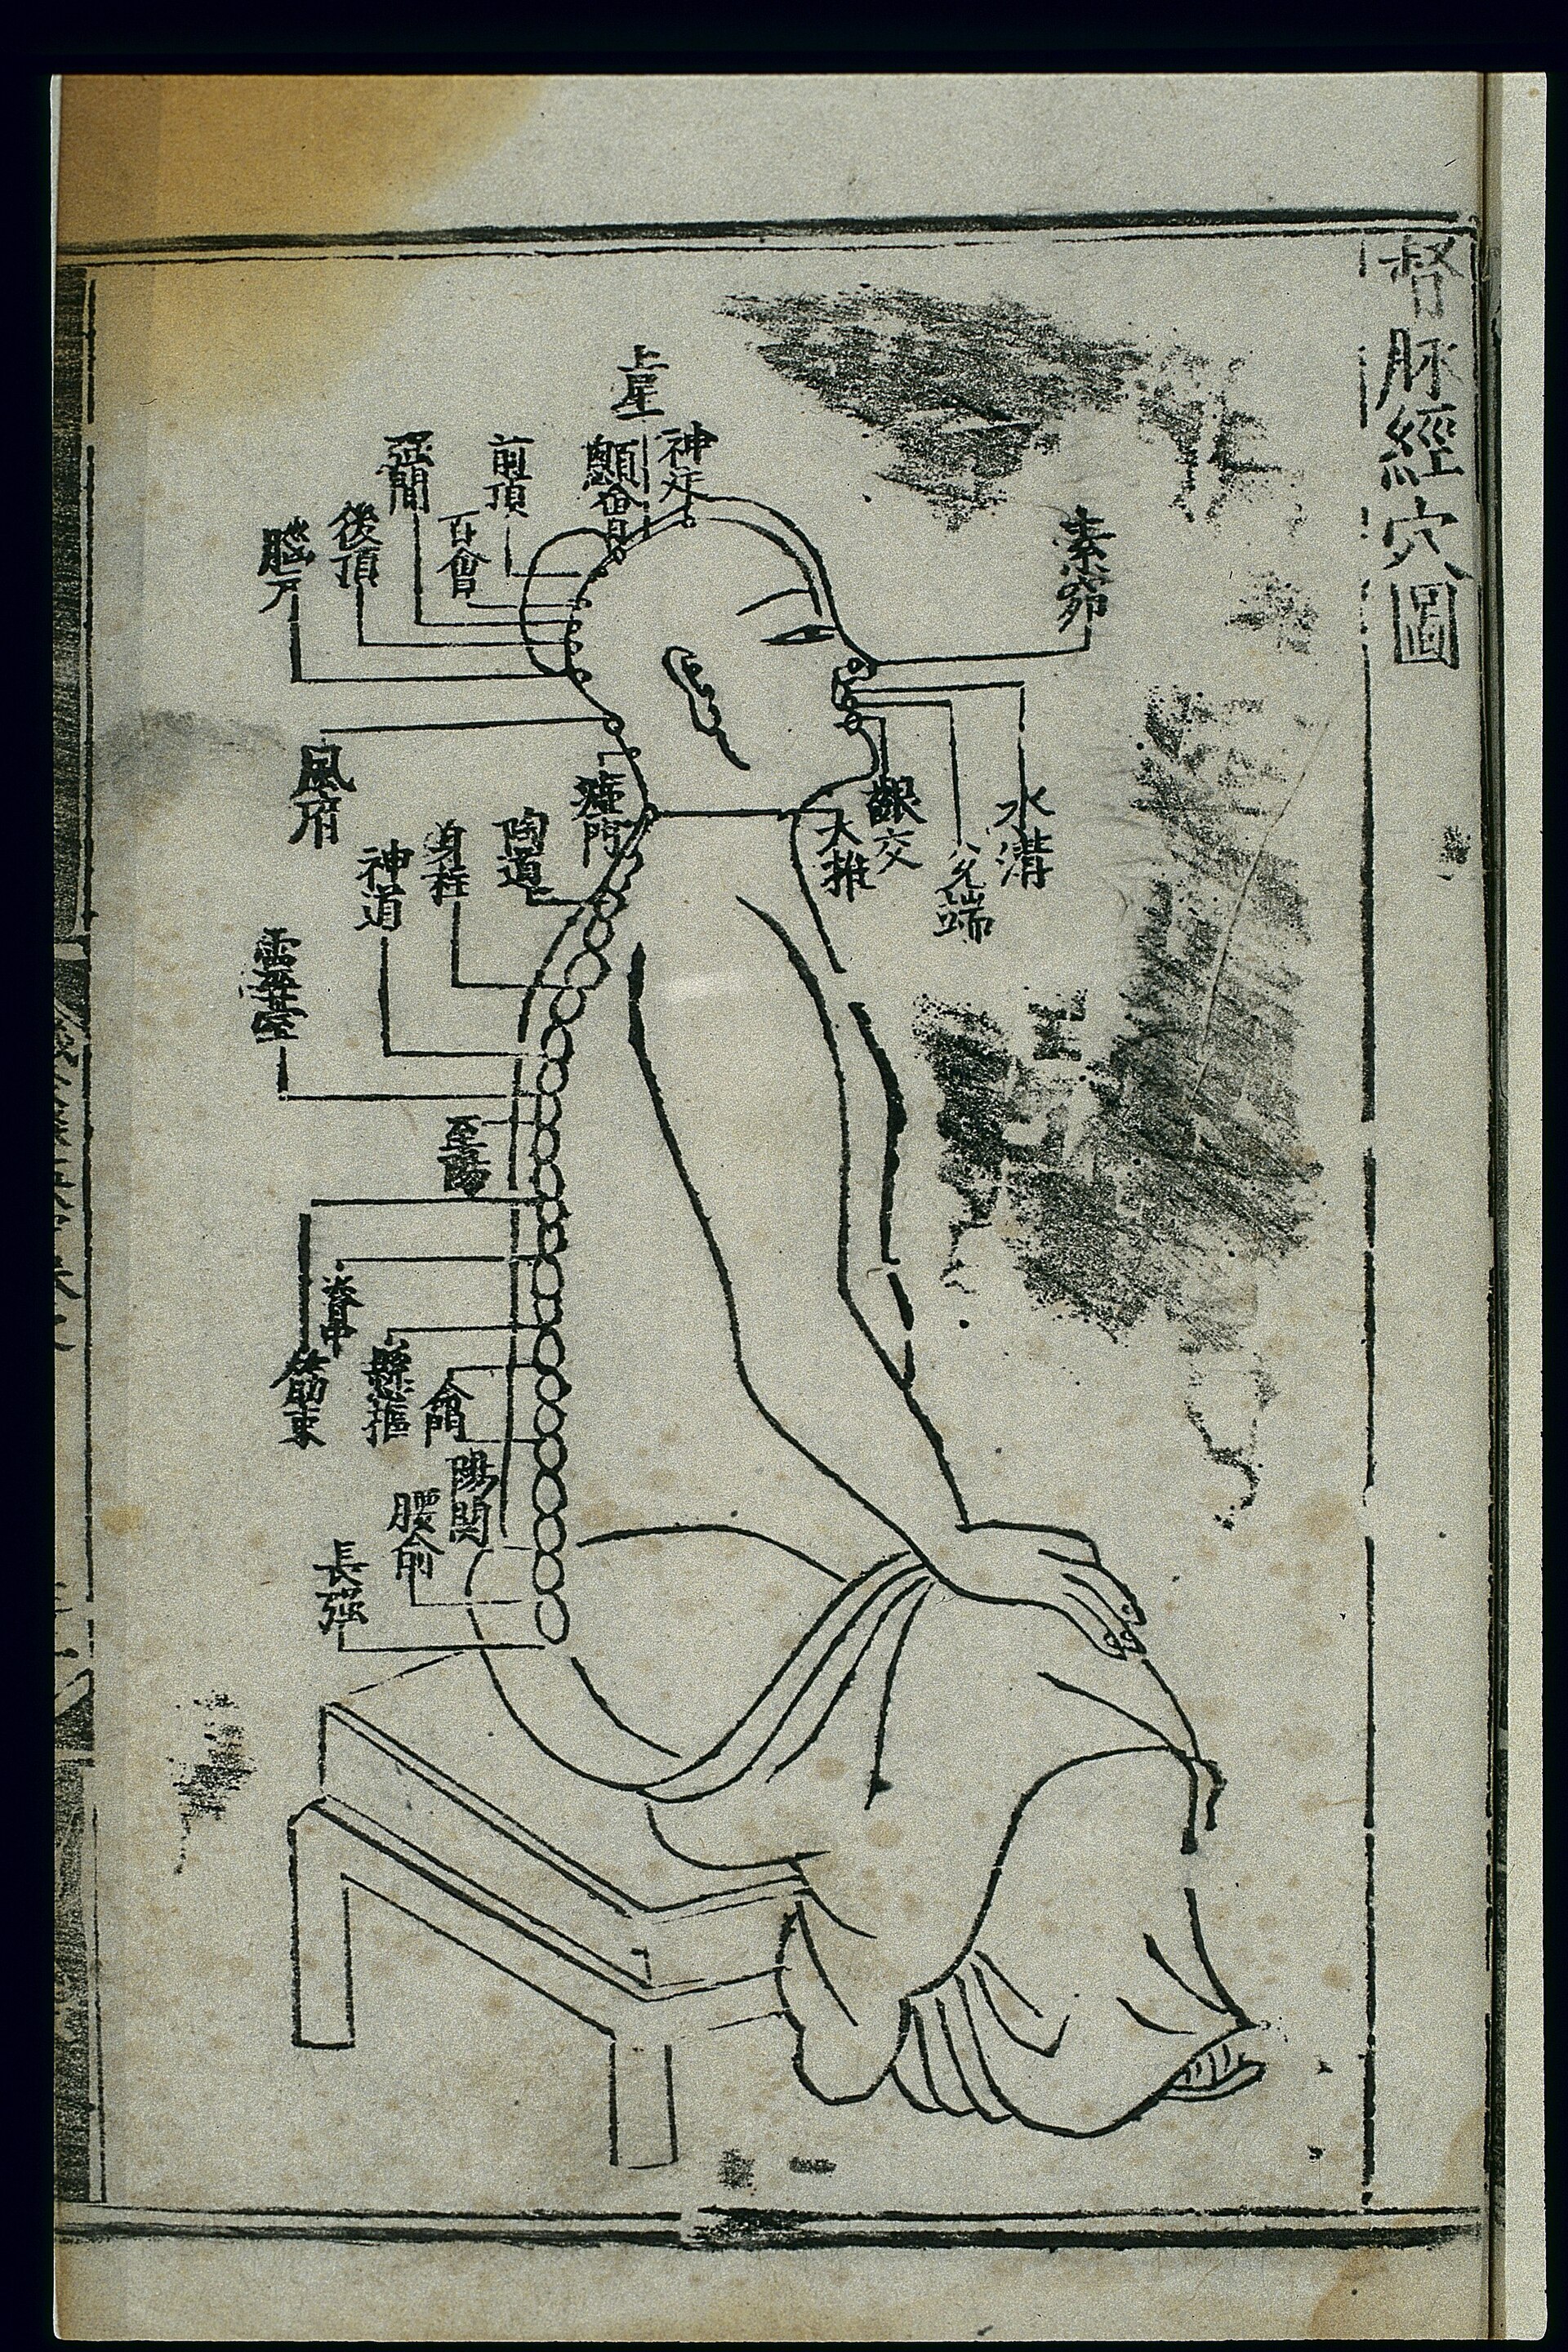 督脉經穴圖
素窌
水溝
兊端
齦交
大推
神庭
上星
顖會
前頂
百會
强間
後頂
腦戸
風府
瘂門
陶道
身柱
神道
靈臺
至陽
筋束
脊中
懸樞
命門
陽関
腰俞
長强